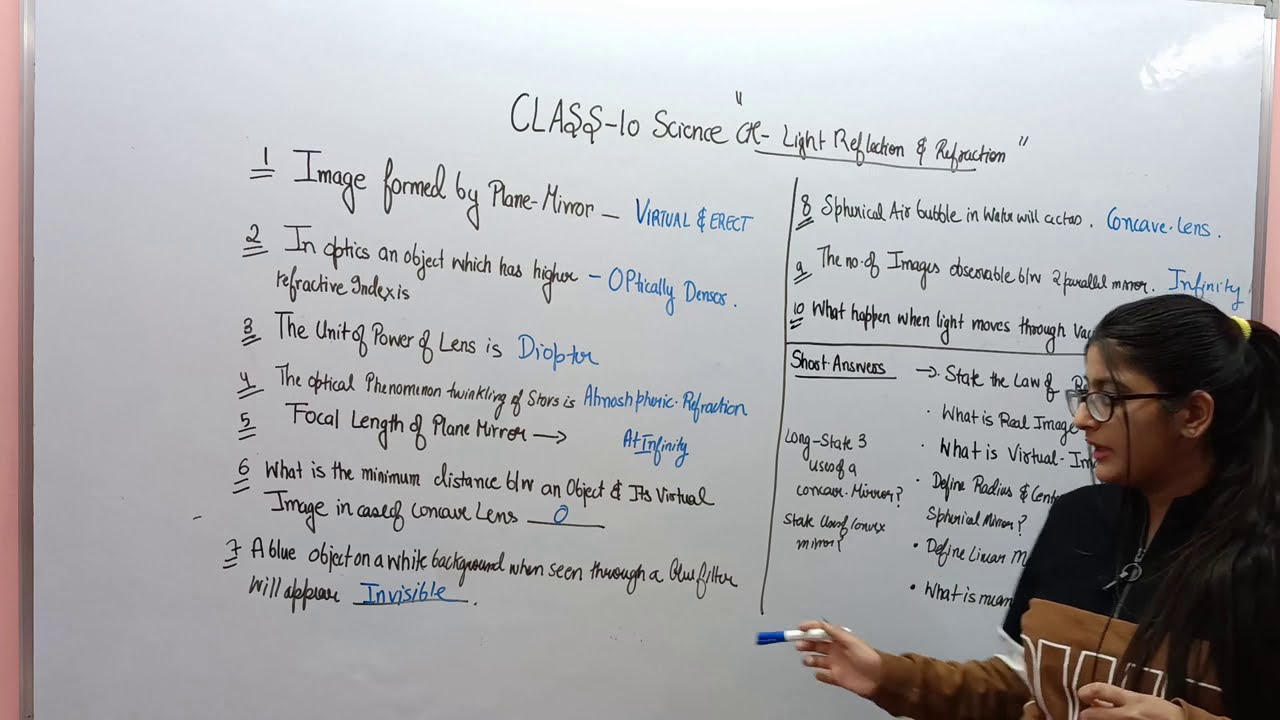 CLASS-10 Science "CH- Light Reflection & Refraction"
1 Image formed by Plane-Mirror - VIRTUAL & ERECT
2 In optics an object which has higher - OPtically Densor.
refractive Index is
3 The Unit of Power of Lens is Dioptor
4 The optical Phenomenon twinkling of Stars is Atmoshpheric-Refraction
5 Focal Length of Plane Mirror → At Infinity
6 What is the minimum distance b/w an Object & Its Virtual
Image in case of Concave Lens 0
7 A blue object on a white background when seen through a blue filter
Will appear Invisible.
8 Spherical Air bubble in Water will act as. Concave-Lens.
9 The no. of Images observable b/w 2 parallel mirror. Infinity
10 What happen when light moves through
Short-Answers → State the Law of
· What is Real Image
· What is Virtual-
· Define Radius &
Spherical Mirror?
· Define Linear
· What is
Long-State 3
uses of a
concave-Mirror?
State Uses of convex
mirror?